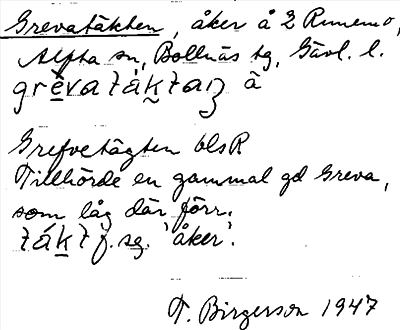 Grevatäkten, åker å 2 Runemo,
Alfta sn, Bollnäs tg, Gävl. l.
grēva táḵtaꞑ ā
Grefvetägten blsR
Tillhörde en gammal gd Greva,
som låg där förr.
táḵt f. sg. 'åker'.
T. Birgerson 1947